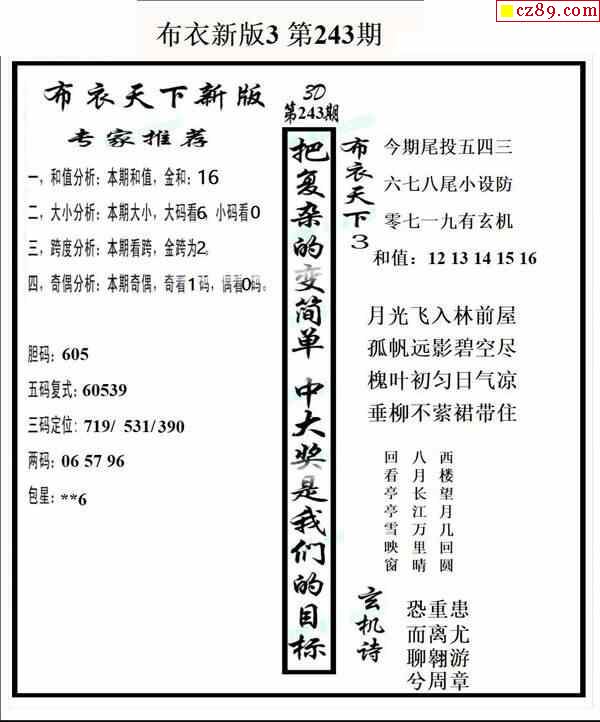 cz89.com
布衣新版3 第243期
布衣天下新版
专家推荐
一，和值分析：本期和值，金和：16
二，大小分析：本期大小，大码看6，小码看0
三，跨度分析：本期看跨，金跨为2。
四，奇偶分析：本期奇偶，奇看1码，偶看0码。
胆码：605
五码复式：60539
三码定位：719/ 531/390
两码：06 57 96
包星：**6
3D
第243期
把复杂的变简单 中大奖是我们的目标
布衣天下3
今期尾投五四三
六七八尾小设防
零七一九有玄机
和值：12 13 14 15 16
月光飞入林前屋
孤帆远影碧空尽
槐叶初匀日气凉
垂柳不萦裙带住
回 八 西
看 月 楼
亭 长 望
亭 江 月
雪 万 几
映 里 回
窗 晴 圆
玄机诗
恐重患
而离尤
聊翱游
兮周章